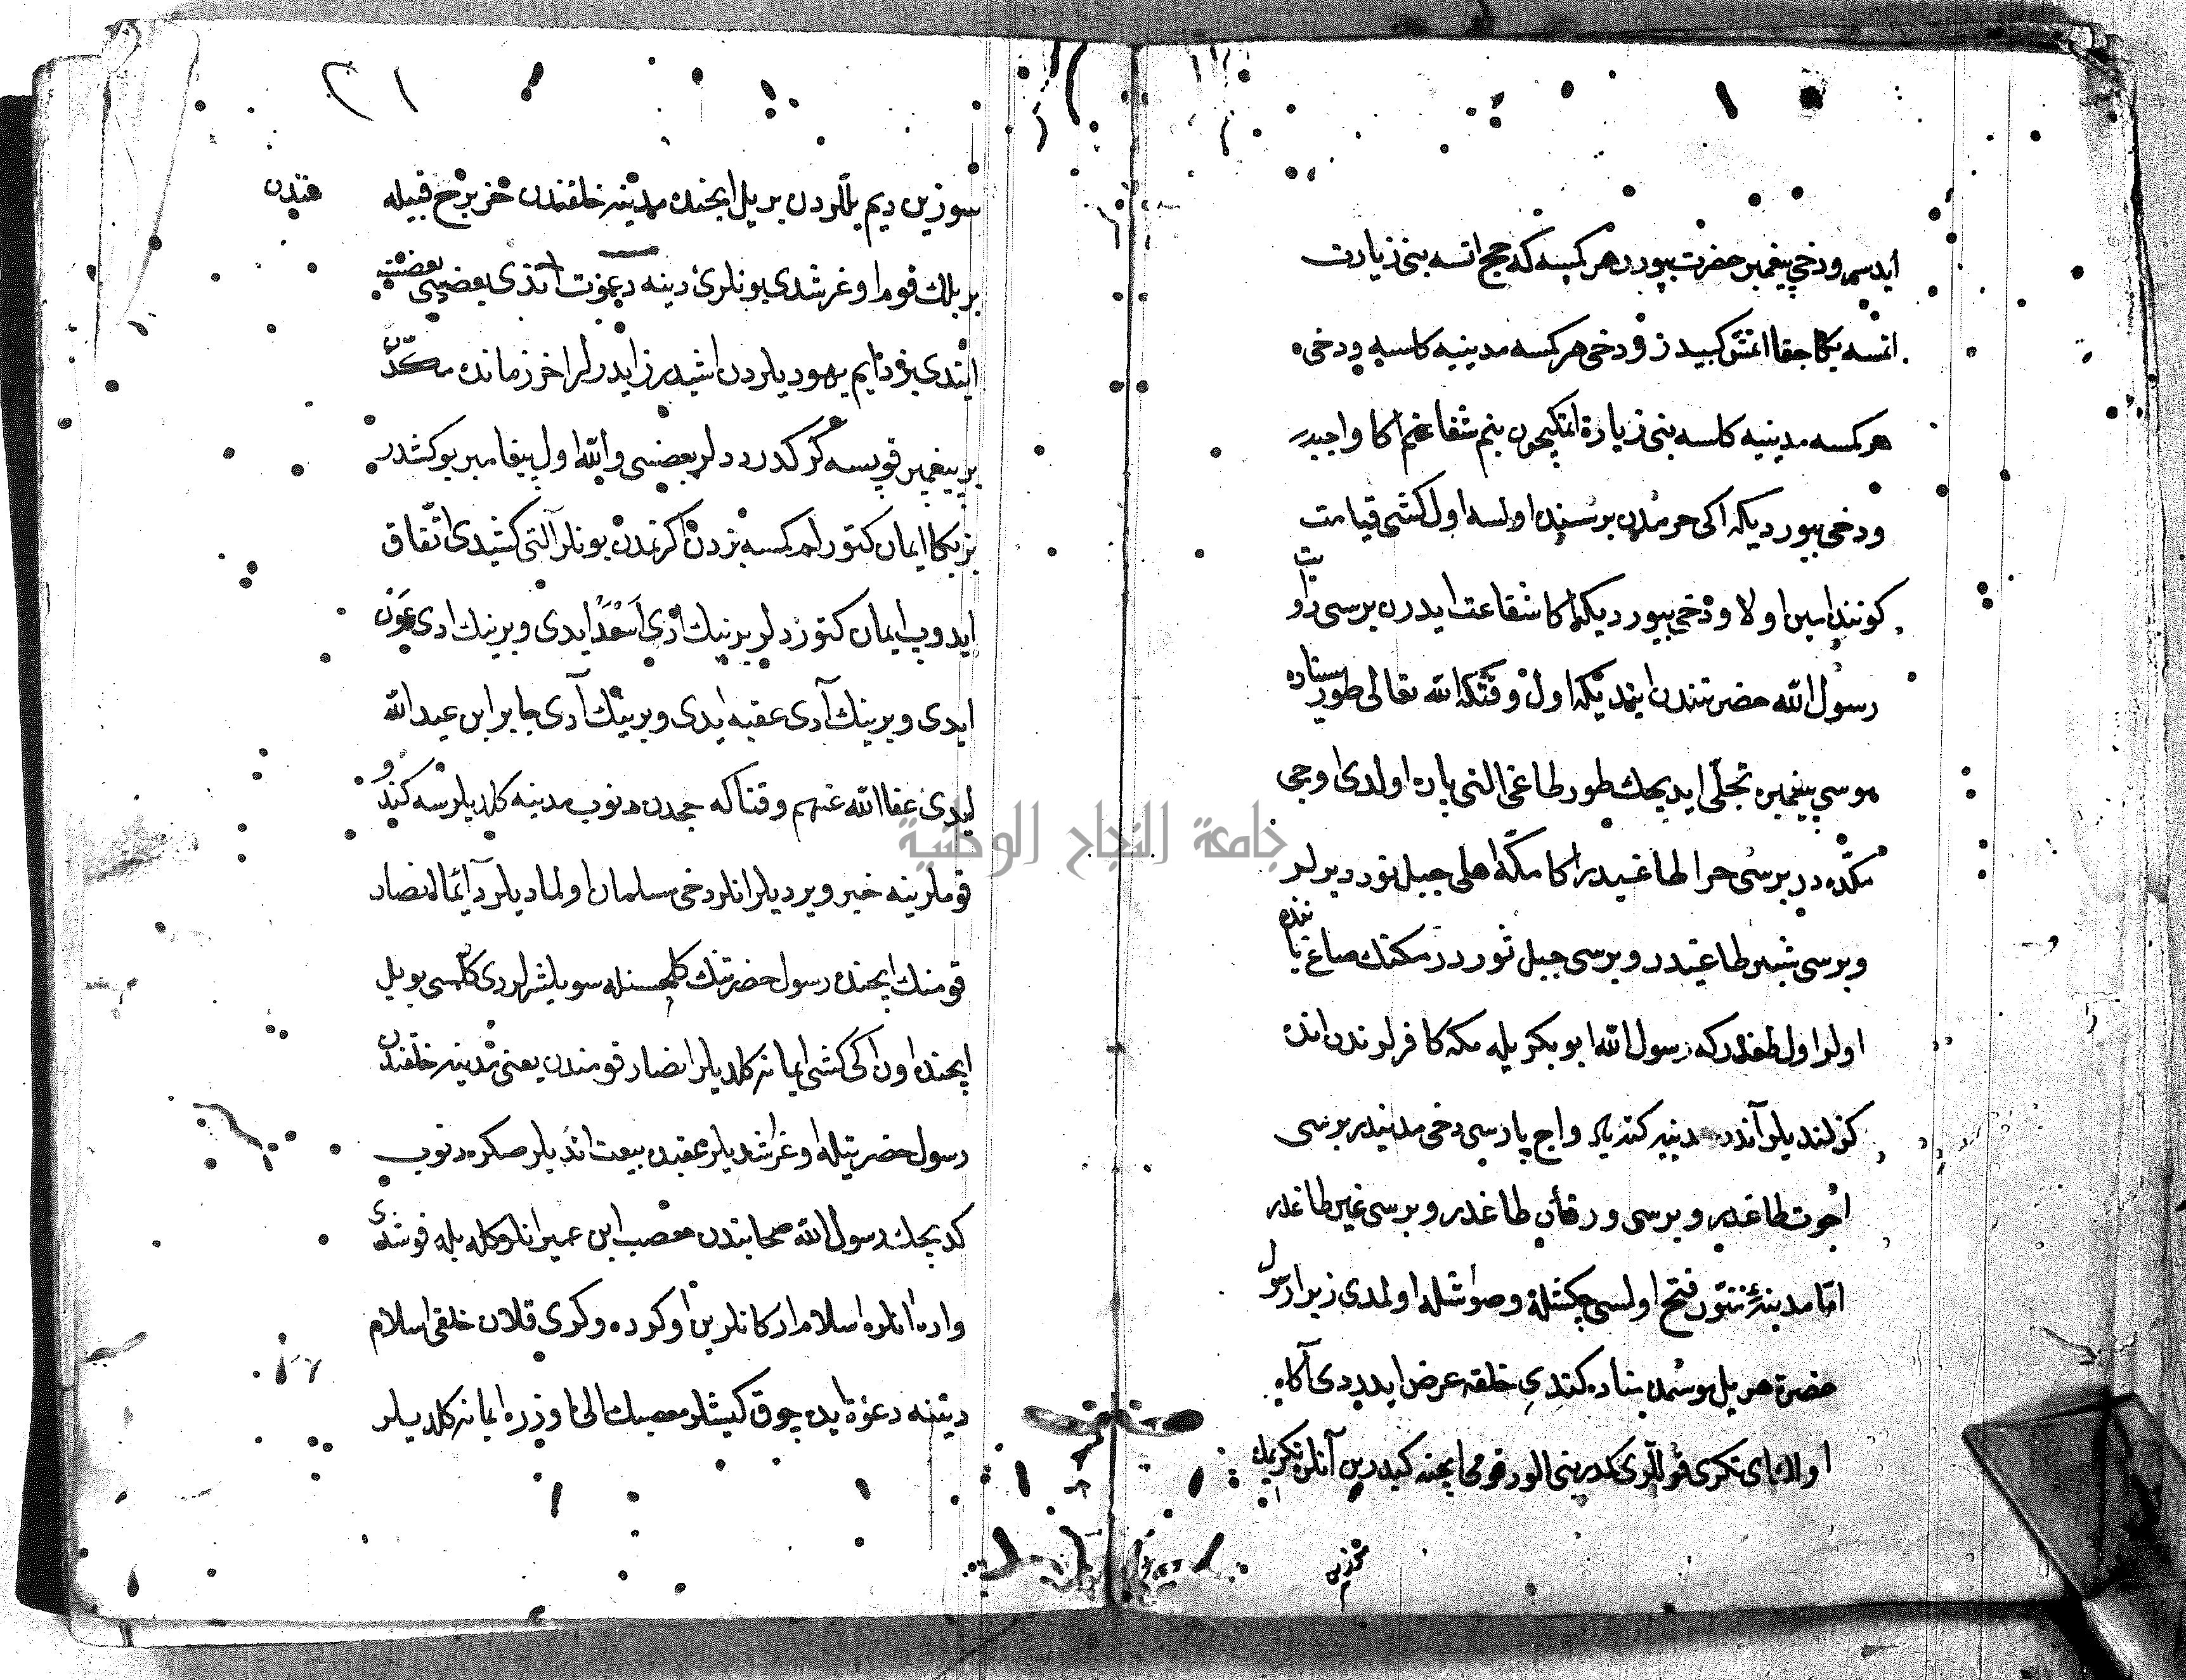 ایدسم ودخی پیغمبر حضرت بیوردر هر کمسه که حج اتسه بنی زیارت
اتمسه بکا جفا اتمش کبیدر ودخی هر کمسه مدینیه کلسه ودخی
هر کمسه مدینیه کلسه بنی زیارة اتمکیچون بنم شفاعتم اکا واجبدر
ودخی بیوردیکه اکی حرمدن برسنده اولسه اول کشی قیامت
کوننده امین اولا ودخی بیوردیکه اکا شفاعت ایدرن برسی روایت
رسول الله حضرتندن ایتدیکه اول وقتکه الله تعالی طور سیناده
موسی پیغمبره تجلی ایدیجک طور طاغی التی پاره اولدی اوچی
مکّده در برسی حرا طاغیدر اکا مکّه اهلی جبل نور دیرلر
وبرسی ثبیر طاغیدر وبرسی جبل ثوردر مکنک صاغ یاننده
اولر اول طغدر که رسول الله ابو بکر یله مکه کافرلرندن انده
کزلندیلر آندن مدینیه کتدیلر واچ پارسی دخی مدینیدر برسی
احوت طاغدر وبرسی ورقان طاغدر وبرسی عیر طاغدر
امّا مدینه ننّون فتح اولسی چکشله وصواشله اولمدی زیرا رسول
حضرة هر ییل موسمده مناده کندی خلقه عرض ایدردی آکاه
اولاکای تکری قوللری کدر بنی الور قومی ایچنه کیدرین آنلره تکرینك
سوزین دیم یللردن بر ییل ایچنده مدینه خلقندن خزرج قبیله سندن
بر بلك قوم اوغرشدی بونلری دینه دعوت اتدی بعضیسی بعضیسنه
ایتدی بز دایم یهودیلردن اشیدرز ایدرلر اخر زمانده مکّدن
بر پیغمبر قوپسه کرکدر ددلر بعضیسی والله اول پیغامبر بو کشدر
بز بکا ایمان کتورلم کمسه بزدن اکرتمدن بونلر آلتی کشیدی اتّفاق
ایدوب ایمان کتوردلر برنیك ادی اسعد ایدی وبرنیك ادی عون
ایدی وبرینك آدی عقبه ایدی وبرینك آدی جابر ابن عبد الله
ایدی عفا الله عنهم وقتاکه حجدن دنوب مدینه کلدیلرسه کندو
قوملرینه خبر ویردیلر انلر دخی مسلمان اولمادیلر دآئما انصار
قومنك ایچنده رسول حضرتنك کلمسنله سویلشرلردی کلسی ییل
ایچنده اون اکی کشی ایمانه کلدیلر انصار قومندن یعنی مدینه خلقندن
رسول حضرتیله اوغراشدیلر عقبده بیعت اتدیلر صکره دنوب
کدیجك رسول الله صحابندن مصعب ابن عمیر انلرکله بله قوشدی
واره انلره اسلام ارکانلرین اوکرده وکری قلان خلقی اسلام
دیننه دعوة ایده چوق کیشلر مصعبك الی اوزره ایمانه کلدیلر